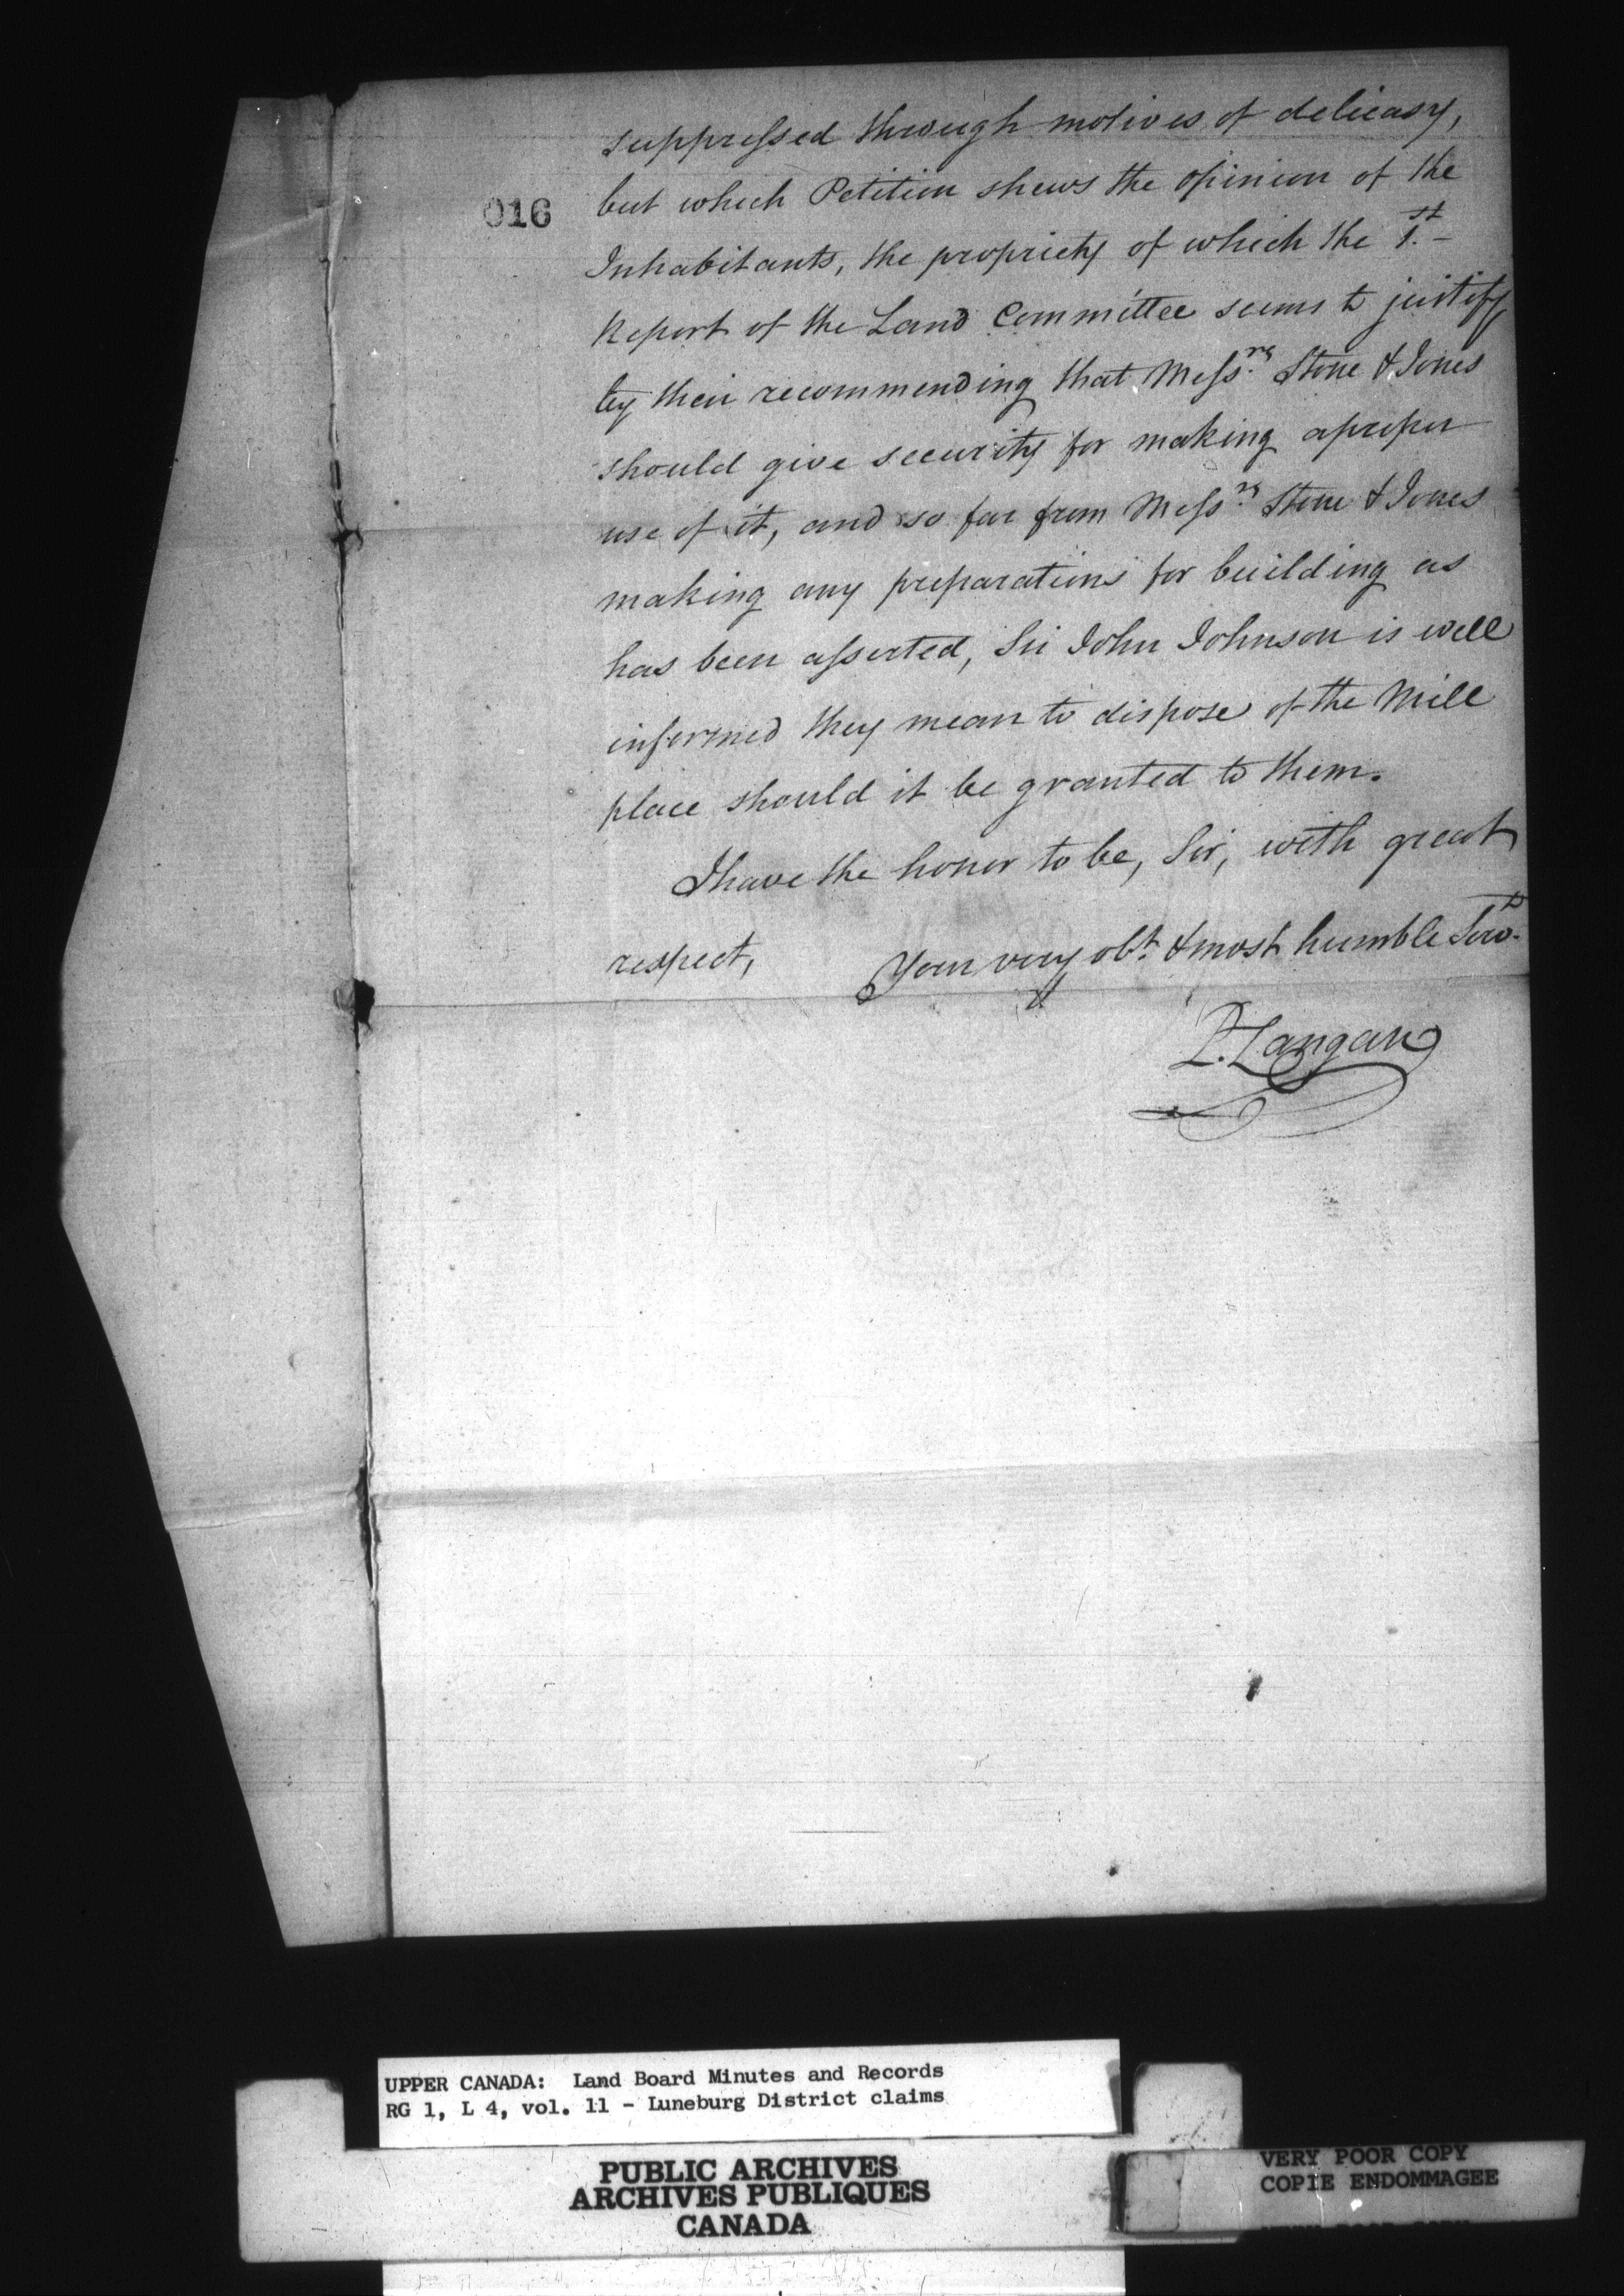 suppressed through motives of delicasy,
016
but which Petition shews the opinion of the
Inhabitants, the propriety of which the 1.st -
Report of the Land Committee seems to justify
by their recommending that Mess.rs Stone & Jones
should give security for making a proper
use of it, and so far from Mess.rs Stone & Jones
making any preparations for building as
has been asserted, Sir John Johnson is well
informed they mean to dispose of the Mill
place should it be granted to them.
I have the honor to be, Sir, with great
respect, Your very obt. & most humble Serv.t
P. Langan
UPPER CANADA: Land Board Minutes and Records
RG 1, L 4, vol. 11 - Luneburg District claims
PUBLIC ARCHIVES
ARCHIVES PUBLIQUES
CANADA
VERY POOR COPY
COPIE ENDOMMAGEE